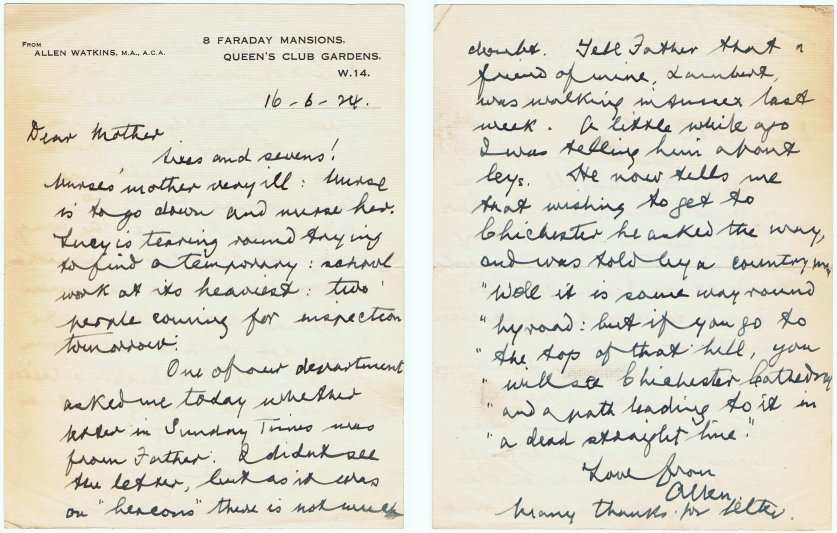 From
ALLEN WATKINS, M.A., A.C.A.
8 FARADAY MANSIONS,
QUEEN'S CLUB GARDENS,
W.14.
16-6-24.
Dear Mother
Sixes and sevens!
Nurses' mother very ill: Nurse
is to go down and nurse her.
Lucy is tearing round trying
to find a temporary: school
work at its heaviest: two
people coming for inspection
tomorrow.
One of our department
asked me today whether
letter in Sunday Times was
from Father. I didn't see
the letter, but as it was
on "beacons" there is not much
doubt. Tell Father that a
friend of mine, Lambert,
was walking in Sussex last
week. A little while ago
I was telling him about
leys. He now tells me
that wishing to get to
Chichester he asked the way,
and was told by a country man
"Well it is some way round
"by road: but if you go to
"the top of that hill, you
"will see Chichester Cathedral
"and a path leading to it in
"a dead straight line."
Love from
Allen.
Many thanks for letter.